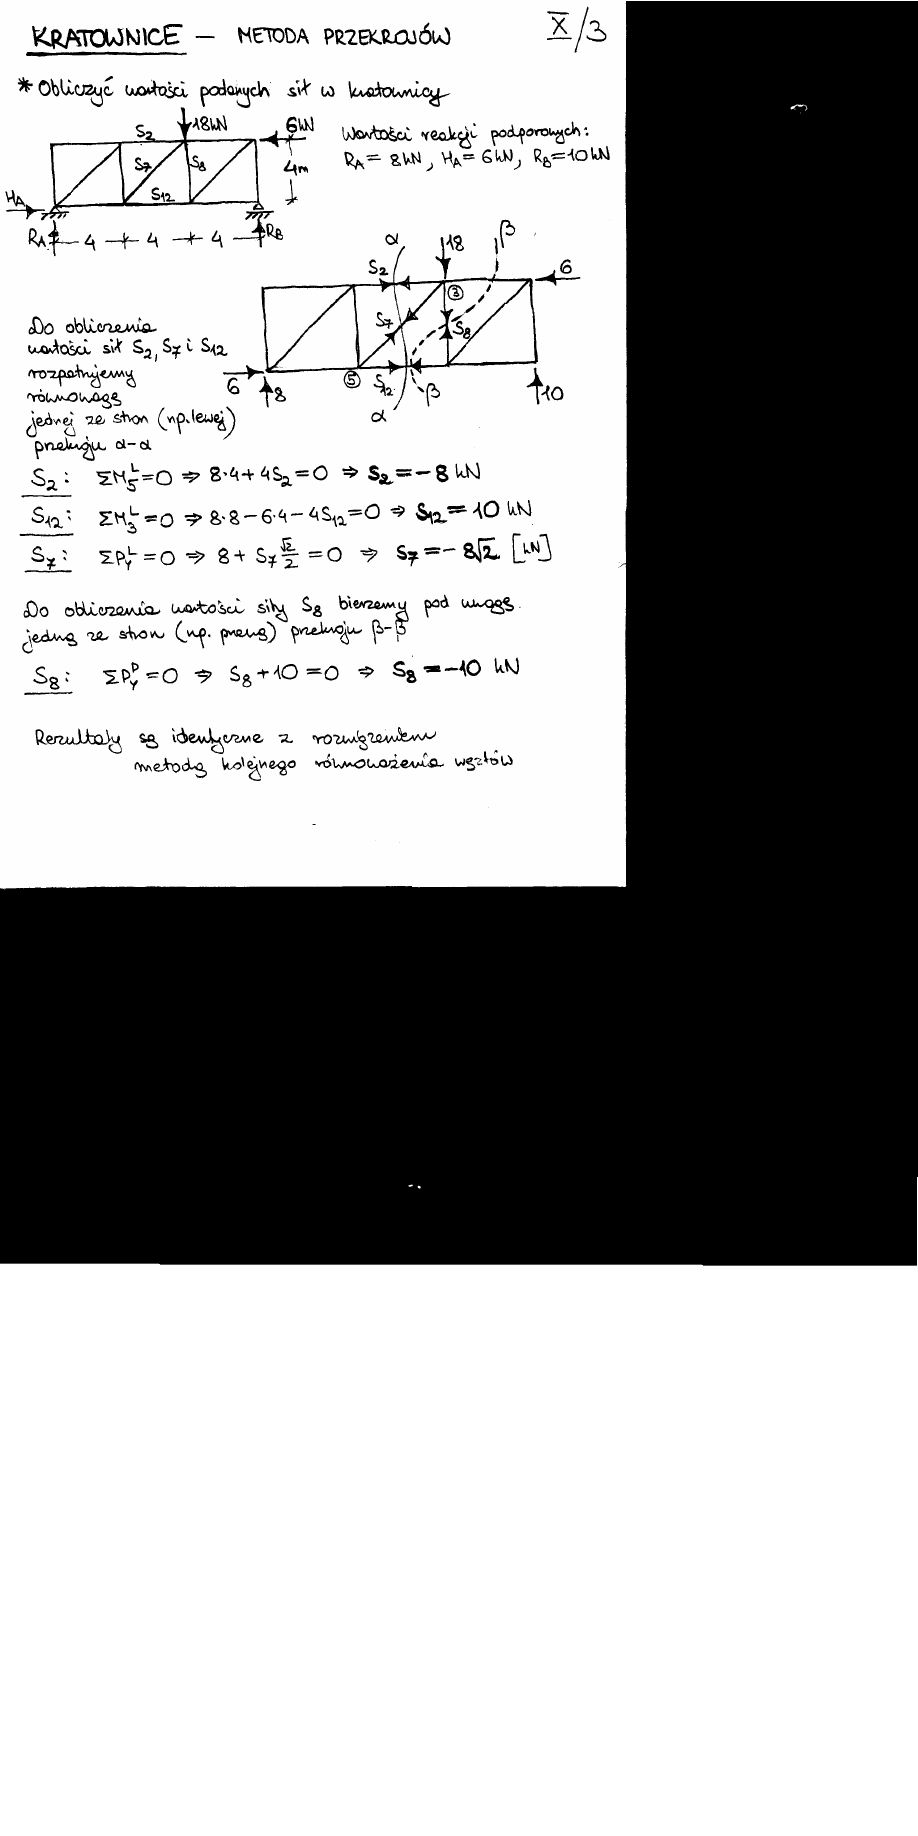 KRATOWNICE — METODA PRZEKROJÓW
X/3
* Obliczyć wartości podanych sił w kratownicy
18kN
6kN
S2
S7
S8
S12
4m
HA
RA
4
4
4
RB
Wartości reakcji podporowych:
RA = 8kN, HA = 6kN, RB = 10kN
α
18
β
S2
6
③
S7
S8
6
8
⑤
S12
β
10
α
Do obliczenia
wartości sił S2, S7 i S12
rozpatrujemy
równowagę
jednej ze stron (np. lewej)
przekroju α-α
S2: ΣM5^L = 0 ⇒ 8·4 + 4S2 = 0 ⇒ S2 = -8 kN
S12: ΣM3^L = 0 ⇒ 8·8 - 6·4 - 4S12 = 0 ⇒ S12 = 10 kN
S7: ΣPY^L = 0 ⇒ 8 + S7 √2/2 = 0 ⇒ S7 = -8√2 [kN]
Do obliczenia wartości siły S8 bierzemy pod uwagę
jedną ze stron (np. prawą) przekroju β-β
S8: ΣPY^P = 0 ⇒ S8 + 10 = 0 ⇒ S8 = -10 kN
Rezultaty są identyczne z rozwiązaniem
metodą kolejnego równoważenia węzłów